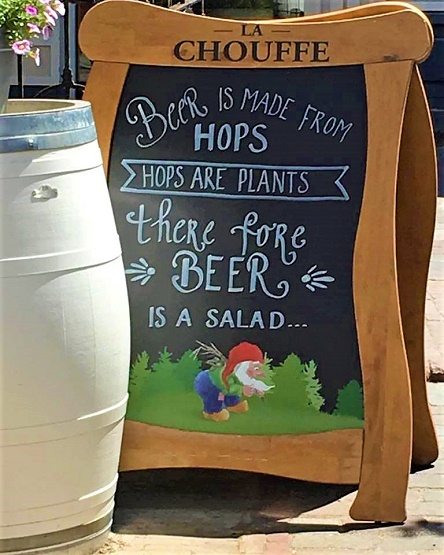 LA
CHOUFFE
Beer IS MADE FROM
HOPS
HOPS ARE PLANTS
there fore
BEER
IS A SALAD...